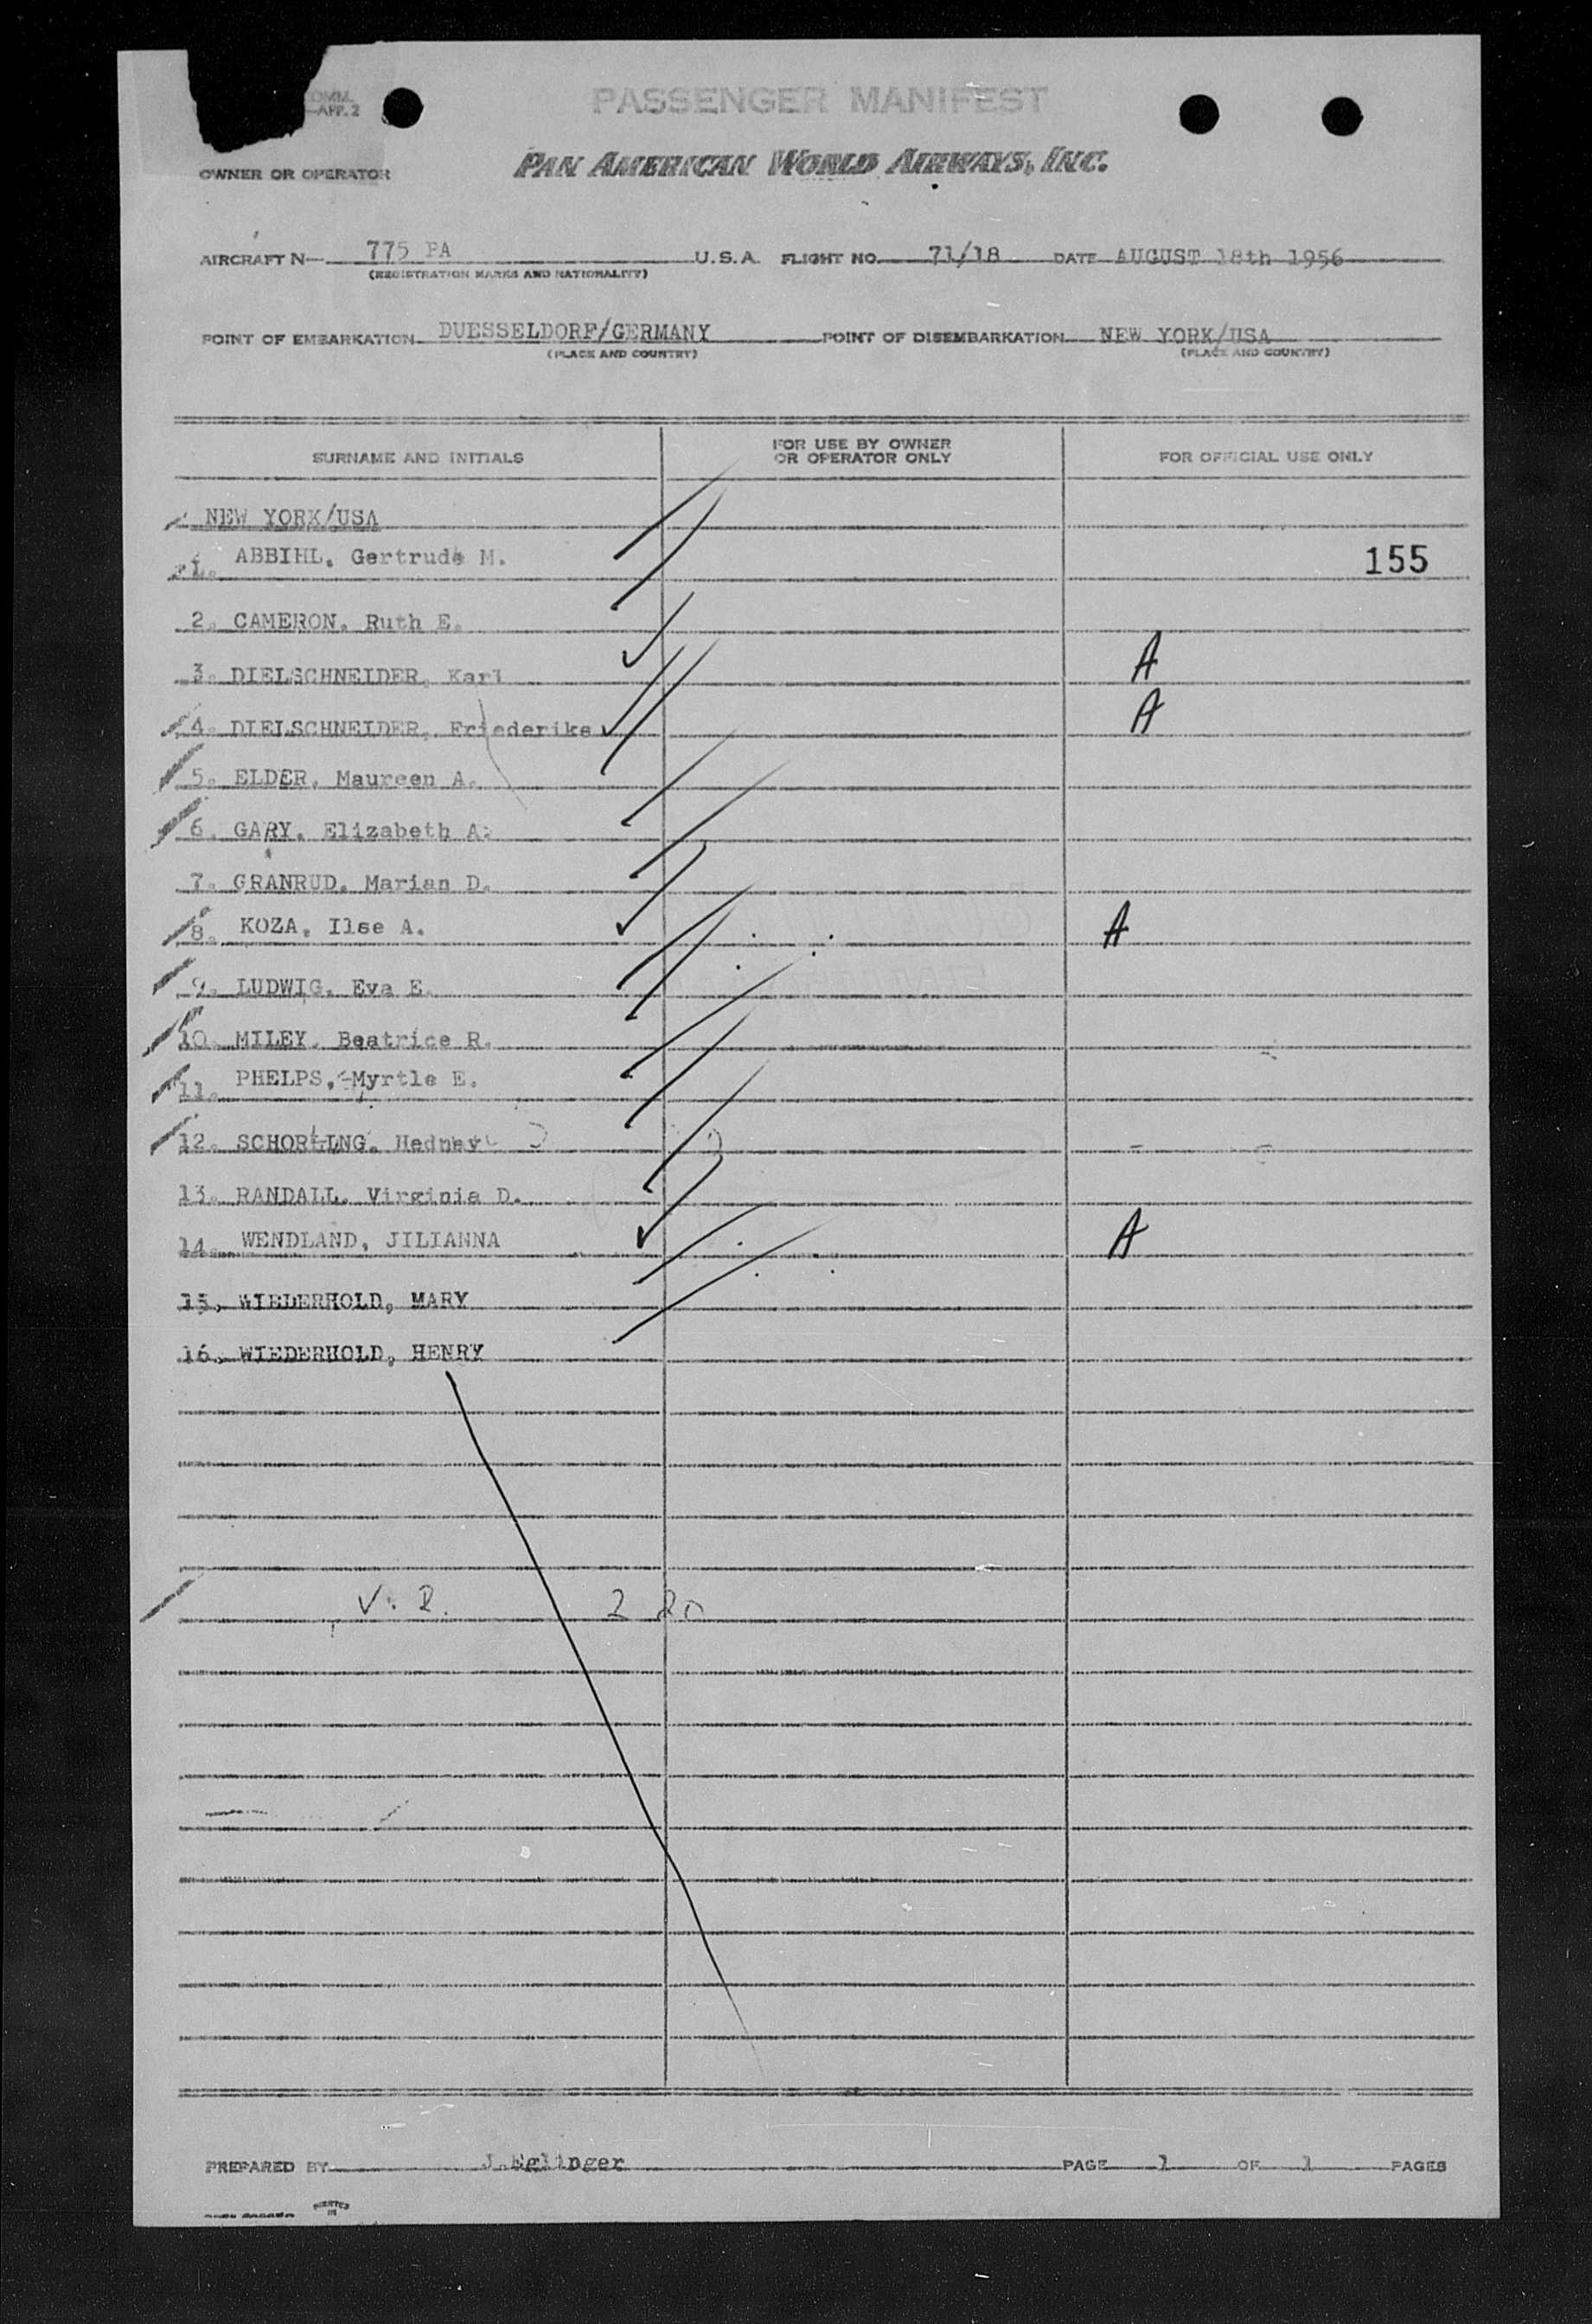 COMM.
—APP. 2
PASSENGER MANIFEST
OWNER OR OPERATOR PAN AMERICAN WORLD AIRWAYS, INC.
AIRCRAFT N— 775 PA U.S.A. FLIGHT NO. 71/18 DATE AUGUST 18th 1956
(REGISTRATION MARKS AND NATIONALITY)
POINT OF EMBARKATION DUESSELDORF/GERMANY POINT OF DISEMBARKATION NEW YORK/USA
(PLACE AND COUNTRY) (PLACE AND COUNTRY)
SURNAME AND INITIALS FOR USE BY OWNER OR OPERATOR ONLY FOR OFFICIAL USE ONLY
NEW YORK/USA
1. ABBIHL, Gertrude M. 155
2. CAMERON, Ruth E.
3. DIELSCHNEIDER, Karl A
4. DIELSCHNEIDER, Friederike A
5. ELDER, Maureen A.
6. GARY, Elizabeth A.
7. GRANRUD, Marian D.
8. KOZA, Ilse A. A
9. LUDWIG, Eva E.
10. MILEY, Beatrice R.
11. PHELPS, Myrtle E.
12. SCHORLING,
13. RANDALL, Virginia D.
14. WENDLAND, JILIANNA A
15, WIEDERHOLD, MARY
16, WIEDERHOLD, HENRY
PREPARED BY J.Eglinger PAGE 1 OF 1 PAGES
PRINTED
IN